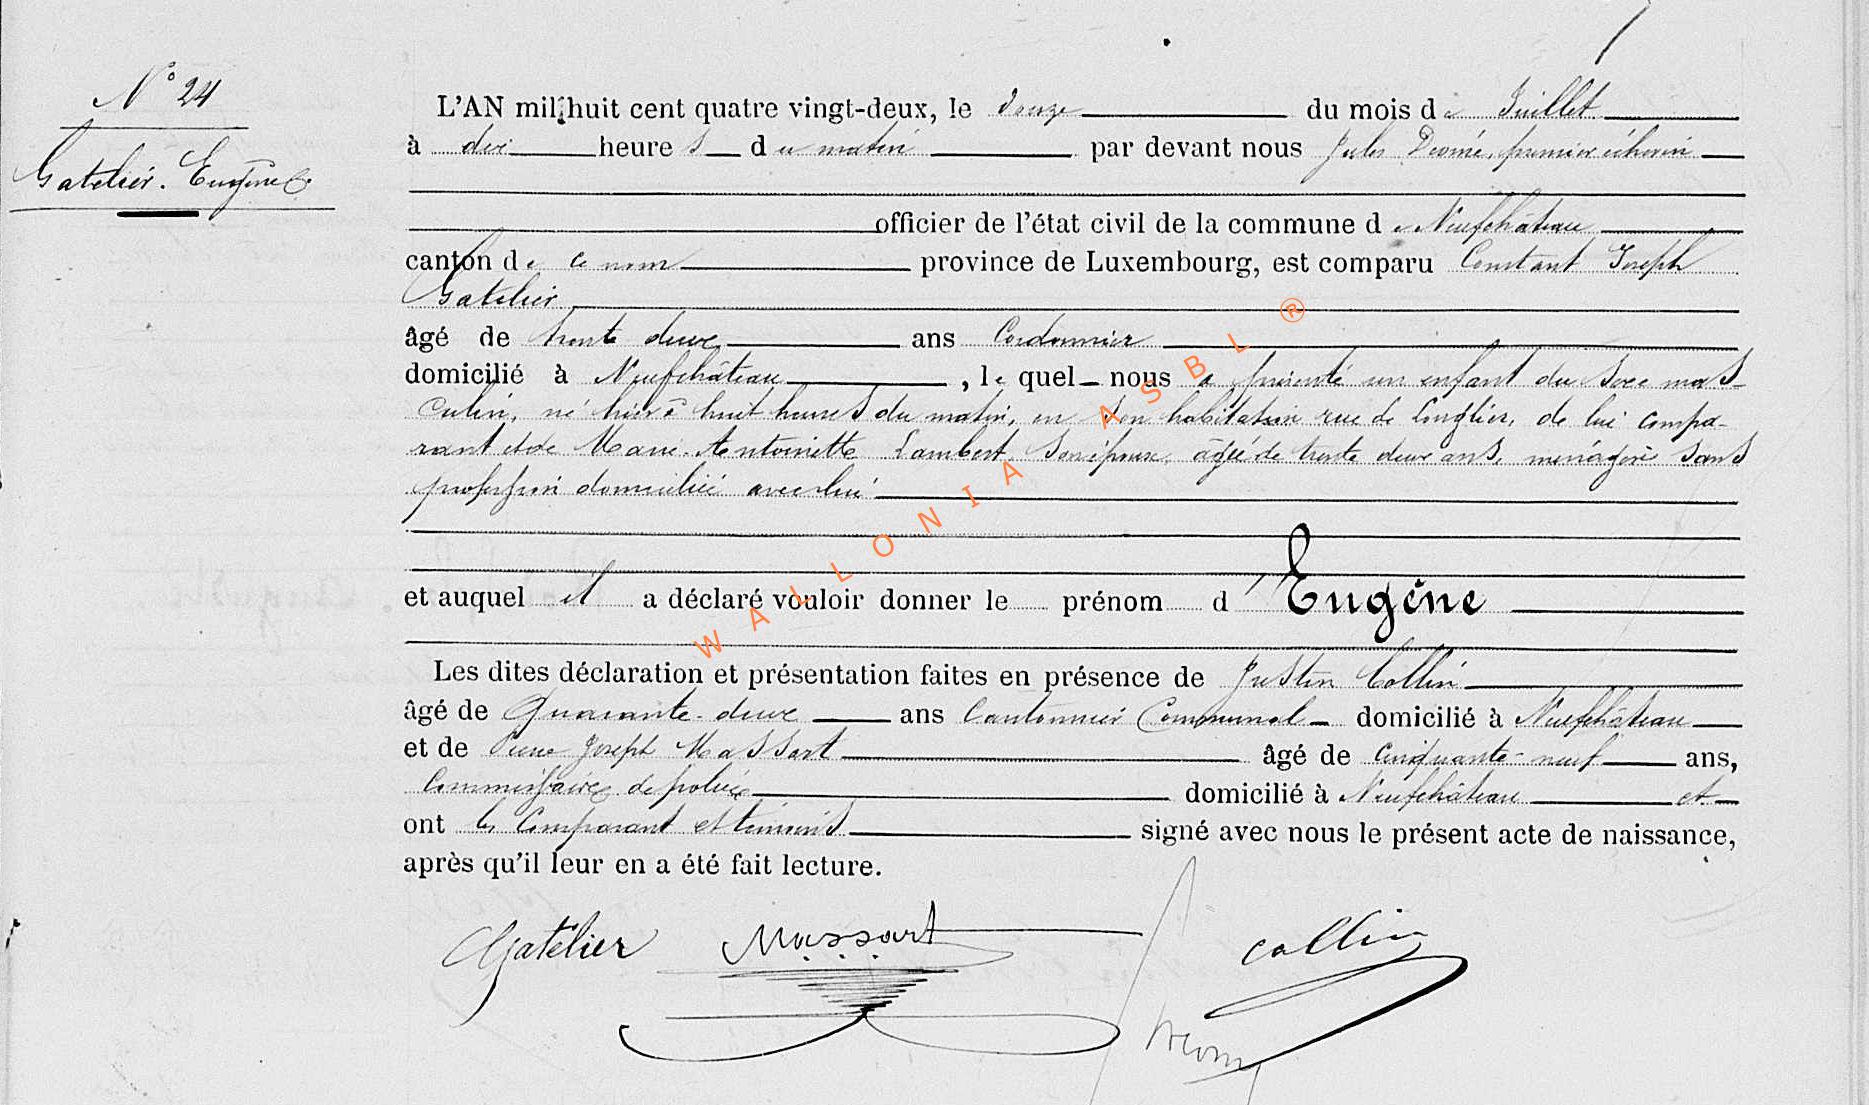 N° 24
Gatelier. Eugène
L'AN mil huit cent quatre vingt-deux, le douze du mois de Juillet
à dix heures du matin par devant nous Jules premier échevin
officier de l'état civil de la commune de Neufchâteau
canton de ce nom province de Luxembourg, est comparu Constant Joseph
Gatelier
âgé de trente deux ans Cordonnier
domicilié à Neufchâteau, lequel nous a présenté un enfant du sexe mas-
culin, né hier à huit heures du matin, en son habitation rue de Longlier, de lui compa-
rant et de Marie-Antoinette Lambert, son épouse, âgée de trente deux ans, ménagère sans
profession domiciliée avec lui
et auquel il a déclaré vouloir donner le prénom d'Eugène
Les dites déclaration et présentation faites en présence de Justin Collin
âgé de Quarante-deux ans Cantonnier Communal domicilié à Neufchâteau
et de Pierre Joseph Massart âgé de cinquante-neuf ans,
Commissaire de police domicilié à Neufchâteau et
ont les Comparant et témoins signé avec nous le présent acte de naissance,
après qu'il leur en a été fait lecture.
Gatelier Massart Collin
WALLONIA ASBL ®